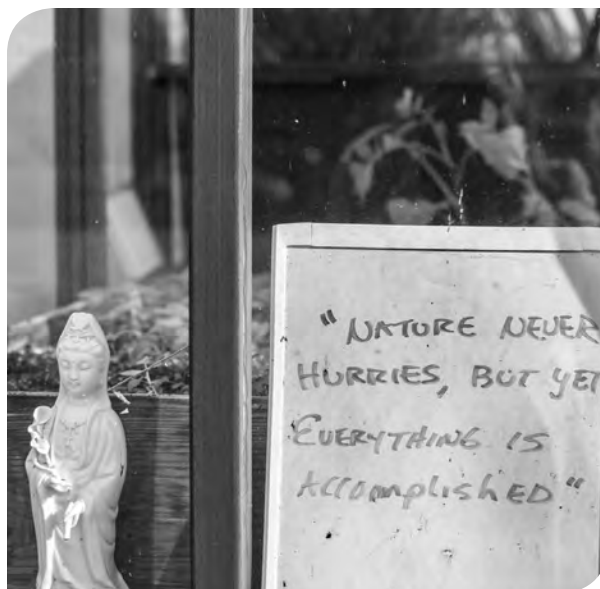 "NATURE NEVER
HURRIES, BUT YET
EVERYTHING IS
AccomplishED"